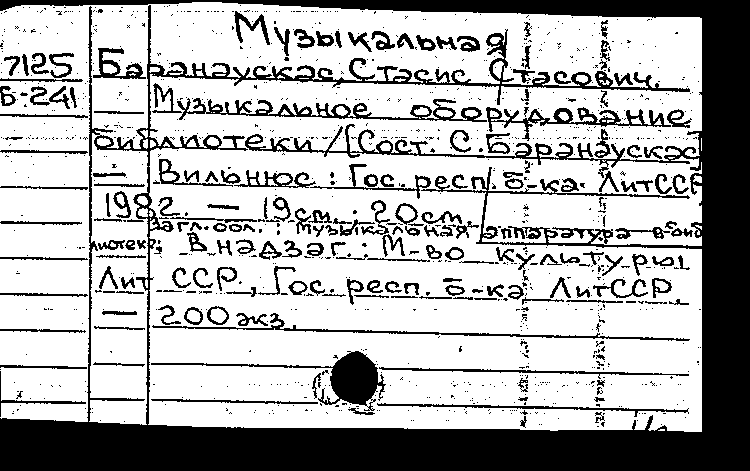 Музыкальная
7125 Баранаускас, Стасис Стасович.
Б-241 Музыкальное оборудование
библиотеки /[Сост. С. Баранаускас]
— Вильнюс : Гос. респ. б-ка ЛитССР
1982. — 19 см. : 20 см.
Загл. обл. : Музыкальная аппаратура в биб
лиотек?; В надзаг. : М-во культуры
Лит ССР, Гос. респ. б-ка ЛитССР.
— 200 экз.